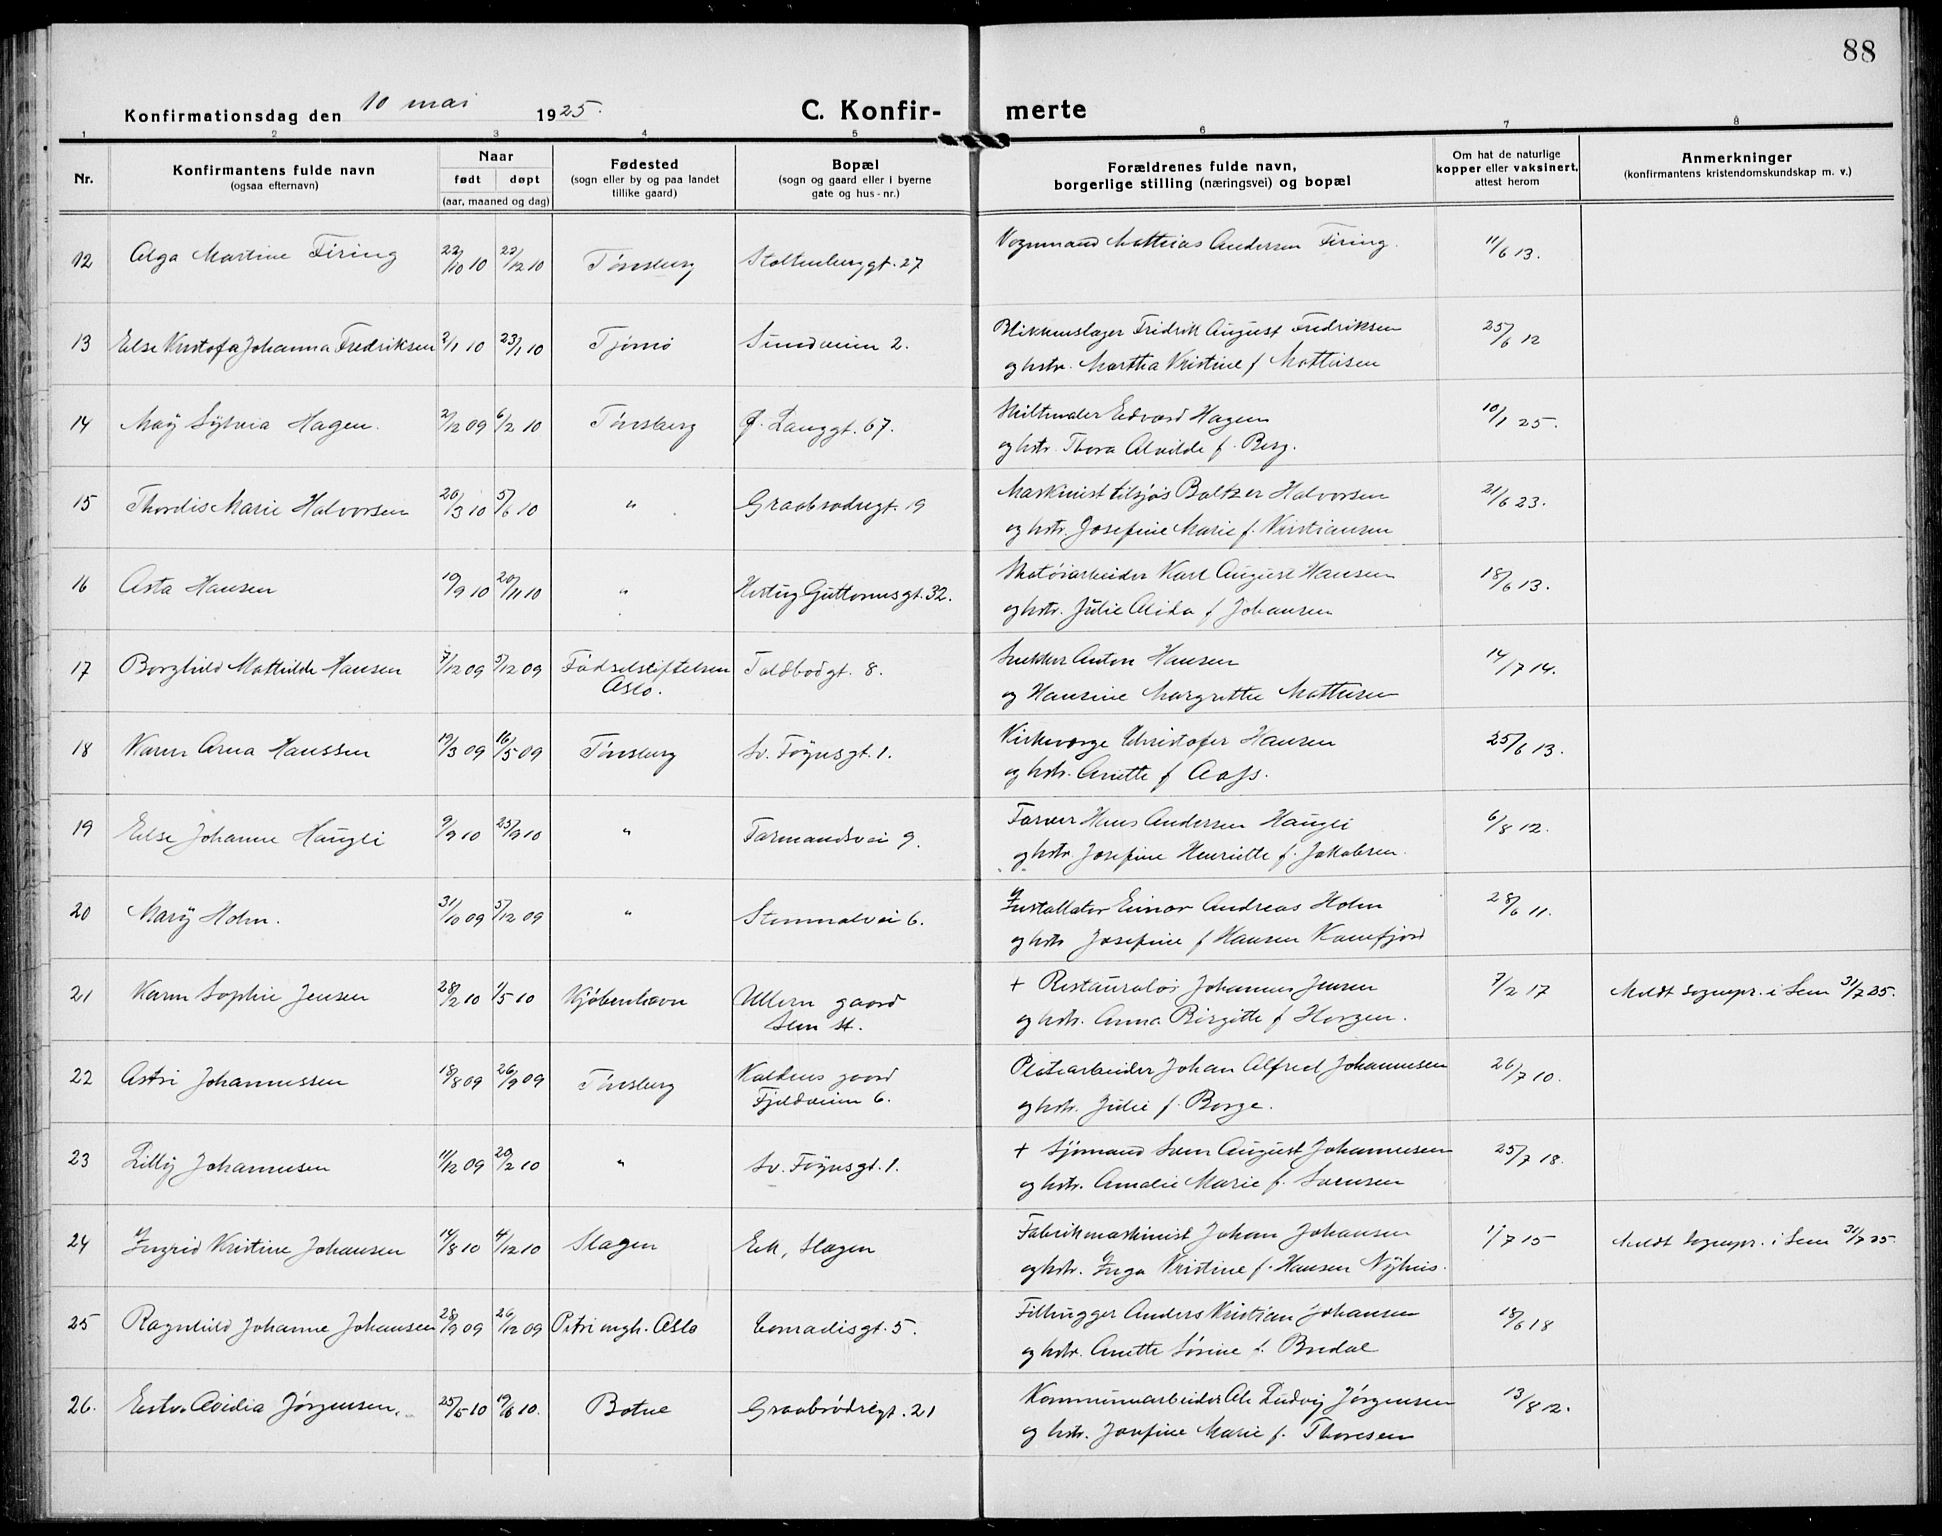 88
Konfirmationsdag den 10 mai 1925.
C. Konfir- merte
1 2 3 4 5 6 7 8
Nr.
Konfirmantens fulde navn
(ogsaa efternavn)
Naar
født døpt
(aar, maaned og dag)
Fødested
(sogn eller by og paa landet
tillike gaard)
Bopæl
(sogn og gaard eller i byerne
gate og hus-nr.)
Forældrenes fulde navn,
borgerlige stilling (næringsvei) og bopæl
Om hat de naturlige
kopper eller vaksinert,
attest herom
Anmerkninger
(konfirmantens kristendomskundskap m. v.)
12 Martine Firing 22/10 10 22/12 10 Tønsberg Stoltenberggt. 27 Vognmand Mathias Andersen Firing. 11/6 13.
13 Else Kristofa Johanna Fredriksen 2/1 10 23/1 10 Tjømø Sundveien 2. Blikkenslager Fridrik August Fredriksen 25/6 12
og hstr. Martha Kristine f Mathisen
14 May Sylvia Hagen. 2/12 09 6/2 10 Tønsberg Ø. Langgt. 67. Skiltmaler Edvard Hagen 10/1 25.
og hstr. Thora Alvilde f. Berg.
15 Thordis Marie Halvorsen 26/3 10 5/6 10 " Graabrødregt. 19 Maskinist tilsjøs Baltzer Halvorsen 21/6 23.
og hstr. Josefine Marie f. Kristiansen
16 Asta Hansen 19/9 10 20/11 10 " Hertug Guttormsgt. 32. Skotøiarbeider Karl August Hansen 18/6 13.
og hstr. Julie Alida f Johansen
17 Borghild Mathilde Hansen 7/12 09 5/12 09 Fødselstiftelsen Toldbodgt. 8. Snekker Anton Hansen 14/7 14.
Oslo. og Hansine Margrethe Mathisen
18 Karen Arna Hanssen 19/3 09 16/5 09 Tønsberg Sv. Føynsgt. 1. Kirkeverge Christofer Hansen 25/6 13.
og hstr. Anette f Aass.
19 Else Johanne Haugli 9/9 10 25/9 10 " Farmandsvei 9. Farver Hans Andersen Haugli 6/8 12.
og hstr. Josefine Henriette f. Jakobsen.
20 Mary Holm. 31/10 09 5/12 09 " Stenmalvei 6. Installatør Einar Andreas Holm 28/6 11.
og hstr Josefine f Hansen
21 Karen Sophie Jensen 28/2 10 1/5 10 Kjøbenhavn Ullern gaard + Restauratør Johannes Jensen 7/2 17 Meldt sognepr. i Sem 31/7 25.
Sem st. og hstr. Anna Birgitte f Horgen.
22 Astri Johannessen 18/8 09 26/9 09 Tønsberg Kaldnes gaard Platearbeider Johan Alfred Johannesen 26/7 10.
Fjeldveien 6. og hstr. Julie f. Borge.
23 Lilly Johannesen 11/12 09 20/2 10 " Sv. Føynsgt. 1. + Sjømand Sven August Johannesen 25/7 18.
og hstr. Amalie Marie f. Sørensen
24 Ingrid Kristine Johansen 14/8 10 4/12 10 Slagen Eik, Slagen Fabrikmaskinist Johan Johansen 1/7 15 Meldt Sognepr. i Sem 31/7 25
og hstr. Inga Kristine f. Hansen Nyhus.
25 Ragnhild Johanne Johansen 28/9 09 26/12 09 Petri mgh. Oslo Conradisgt. 5. Filhugger Anders Kristian Johansen 18/6 18
og hstr. Anette Sørine f. Bredal
26. Ester Ovidia Jørgensen. 25/5 10 19/6 10. Botne Graabrødregt. 21 Kommunearbeider Ole Ludvig Jørgensen 13/8 12.
og hstr. Josefine Marie f. Thoresen